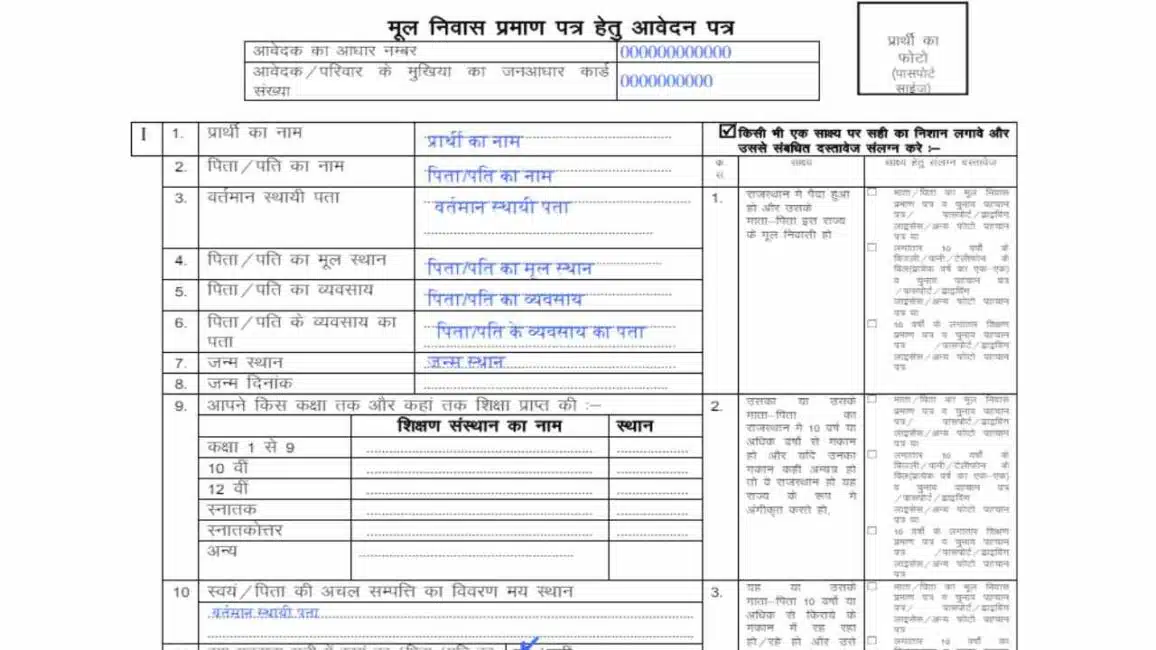 मूल निवास प्रमाण पत्र हेतु आवेदन पत्र
प्रार्थी का
फोटो
(पासपोर्ट
साईज)
आवेदक का आधार नम्बर 000000000000
आवेदक/परिवार के मुखिया का जनआधार कार्ड
संख्या
0000000000
I
1. प्रार्थी का नाम प्रार्थी का नाम
2. पिता/पति का नाम पिता/पति का नाम
3. वर्तमान स्थायी पता वर्तमान स्थायी पता
4. पिता/पति का मूल स्थान पिता/पति का मूल स्थान
5. पिता/पति का व्यवसाय पिता/पति का व्यवसाय
6. पिता/पति के व्यवसाय का
पता
पिता/पति के व्यवसाय का पता
7. जन्म स्थान जन्म स्थान
8. जन्म दिनांक
9. आपने किस कक्षा तक और कहां तक शिक्षा प्राप्त की :–
शिक्षण संस्थान का नाम स्थान
कक्षा 1 से 9
10 वीं
12 वीं
स्नातक
स्नातकोत्तर
अन्य
10 स्वयं/पिता की अचल सम्पत्ति का विवरण मय स्थान
वर्तमान स्थायी पता
किसी भी एक साक्ष्य पर सही का निशान लगावे और
उससे संबधित दस्तावेज संलग्न करे :–
क्र.
स.
साक्ष्य
साक्ष्य हेतु संलग्न दस्तावेज
1. राजस्थान में पैदा हुआ
हो और उसके
माता–पिता इस राज्य
के मूल निवासी हो
माता/पिता का मूल निवास
प्रमाण पत्र व चुनाव पहचान
पत्र/ पासपोर्ट/ड्राइविंग
लाइसेंस/अन्य फोटो पहचान
पत्र या
लगातार 10 वर्षो के
बिजली/पानी/टेलीफोन के
बिल(प्रत्येक वर्ष का एक–एक)
व चुनाव पहचान पत्र
/पासपोर्ट/ड्राइविंग
लाइसेंस/अन्य फोटो पहचान
पत्र या
10 वर्षो के लगातार शिक्षण
प्रमाण पत्र व चुनाव पहचान
पत्र /पासपोर्ट/ड्राइविंग
लाइसेंस/अन्य फोटो पहचान
पत्र
2. उसका या उसके
माता–पिता का
राजस्थान में 10 वर्ष या
अधिक वर्षो से मकान
हो और यदि उनका
मकान कहीं अन्यत्र हो
तो वे राजस्थान हो यह
राज्य के रूप में
अंगीकृत करते हो,
माता/पिता का मूल निवास
प्रमाण पत्र व चुनाव पहचान
पत्र/ पासपोर्ट/ड्राइविंग
लाइसेंस/अन्य फोटो पहचान
पत्र या
लगातार 10 वर्षो के
बिजली/पानी/टेलीफोन के
बिल(प्रत्येक वर्ष का एक–एक)
व चुनाव पहचान पत्र
/पासपोर्ट/ड्राइविंग
लाइसेंस/अन्य फोटो पहचान
पत्र या
10 वर्षो के लगातार शिक्षण
प्रमाण पत्र व चुनाव पहचान
पत्र /पासपोर्ट/ड्राइविंग
लाइसेंस/अन्य फोटो पहचान
पत्र
3. यह या उसके
माता–पिता 10 वर्षो या
अधिक से किराये के
मकान में रह रहा
हो/रहे हो और उसे
माता/पिता का मूल निवास
प्रमाण पत्र व चुनाव पहचान
पत्र/ पासपोर्ट/ड्राइविंग
लाइसेंस/अन्य फोटो पहचान
पत्र या
लगातार 10 वर्षो का